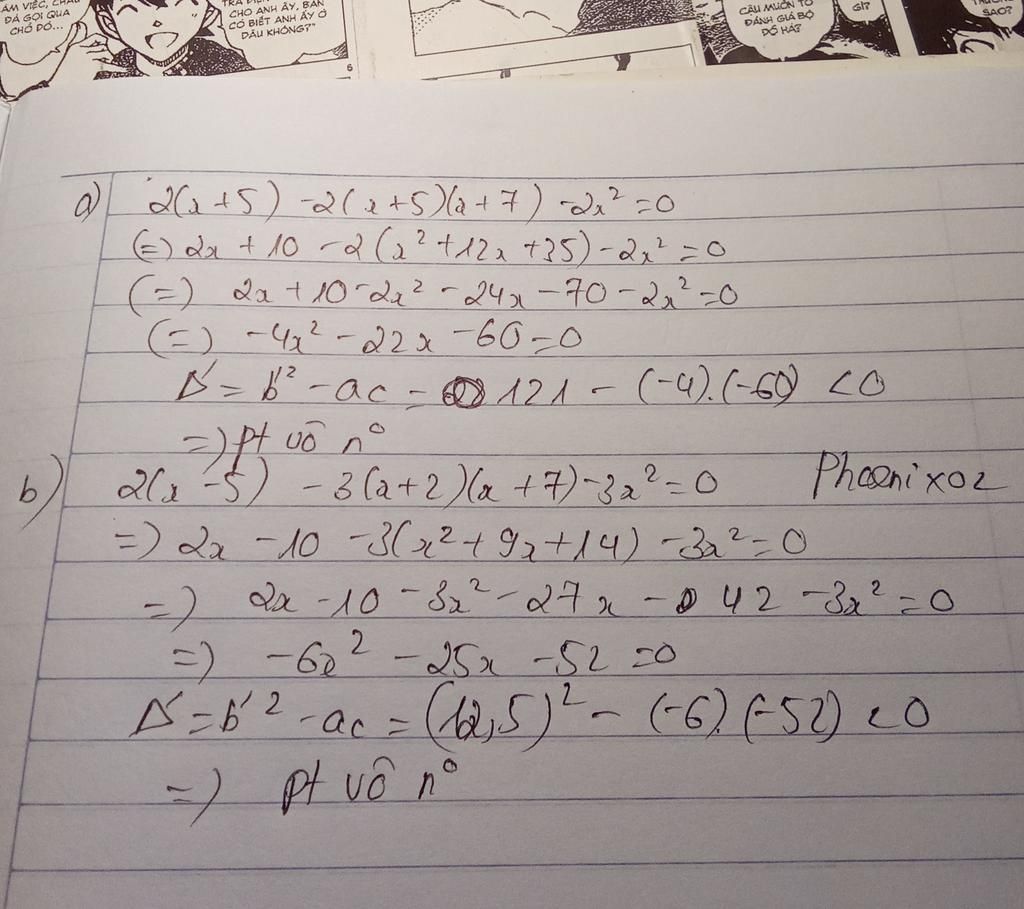 ÂM VIỆC, CHÁU
ĐÃ GỌI QUA
CHỖ ĐÓ...
CHO ANH ẤY, BẠN
CÓ BIẾT ANH ẤY Ở
ĐÂU KHÔNG?"
6
CẬU MUỐN TỚ
ĐÁNH GIÁ BỘ
ĐÓ HẢ?
GÌ?
SAO?
a) 2(x+5) -2(x+5)(x+7) -2x² =0
(=) 2x +10 -2(x²+12x+35) -2x² =0
(=) 2x+10-2x² -24x -70 -2x²=0
(=) -4x² -22x -60=0
Δ' = b'² -ac = 121 - (-4).(-60) <0
=) pt vô n°
b) 2(x -5) -3(x+2)(x+7)-3x²=0 Phoenix02
=) 2x -10 -3(x²+9x+14) -3x²=0
=) 2x -10 -3x² -27x - 42 -3x² =0
=) -6x² -25x -52 =0
Δ' = b'² -ac = (12,5)² - (-6).(-52) <0
=) pt vô n°